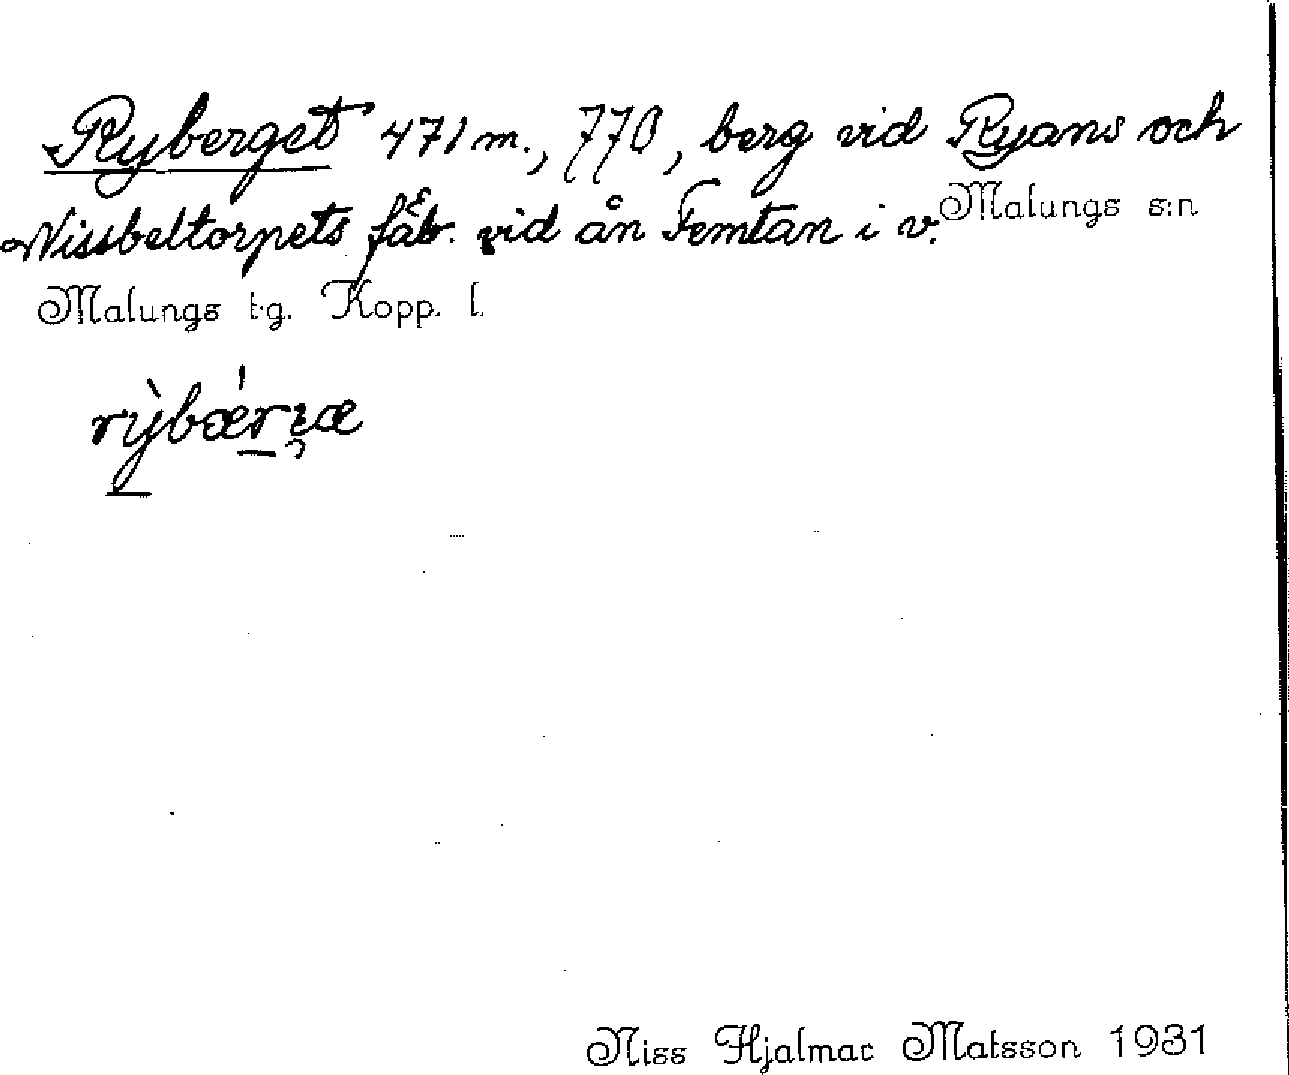 Ryberget 471 m., 770, berg vid Ryans och
Nissbeltorpets fäb. vid ån Femtan i v. Malungs s:n
Malungs t.g. Kopp. l.
rỳbǽrꭥæ
Niss Hjalmar Matsson 1931